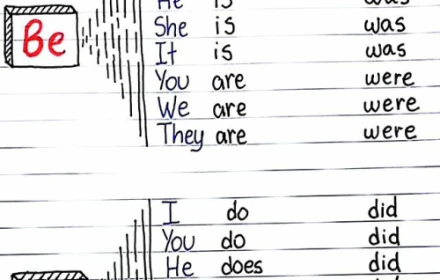 He is was
Be
She is was
It is was
You are were
We are were
They are were
I do did
You do did
He does did
did